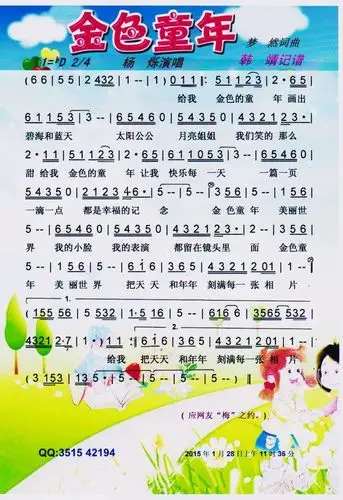 金色童年
1=♭D 2/4 杨 烁演唱
梦 然词曲
韩 靖记谱
(66|55|2432|1--|1--)|011:|51123|2·11|
给我 金色的童 年 画出
|511053|3--|65460|543510|65460|543510|
碧海和蓝天 太阳公公 月亮姐姐 我们笑的 那么
2·11|51123|2·65|611053|3--|65460|
甜 给我 金色的童 年 让我 快乐每 一天 一篇一页
543510|21123|246·|5--|5--|2·156|
一滴一点 都是幸福的记 念 金色童年 美丽世
5--|65460|543510|654560|543210|5·156|
界 我的小脸 我的表演 都留在镜头里 面 金色童
5--|156|5--|616|365|4321201|1--|
年 美丽世 界 把天天 和年年 刻满每一张 相 片
1.
(15556|5532|0·516|5--|6616|3565532|
432127·|1--)|011:|5--|616|365|4321201|
给我 把天天 和年年 刻满每一张 相 片
2.
(3 153|153|5--|5--|5--|5--)‖
( 应网友“梅”之约。)
QQ:3515 42194
2015 年 1 月 28 日上午 11 时 36 分